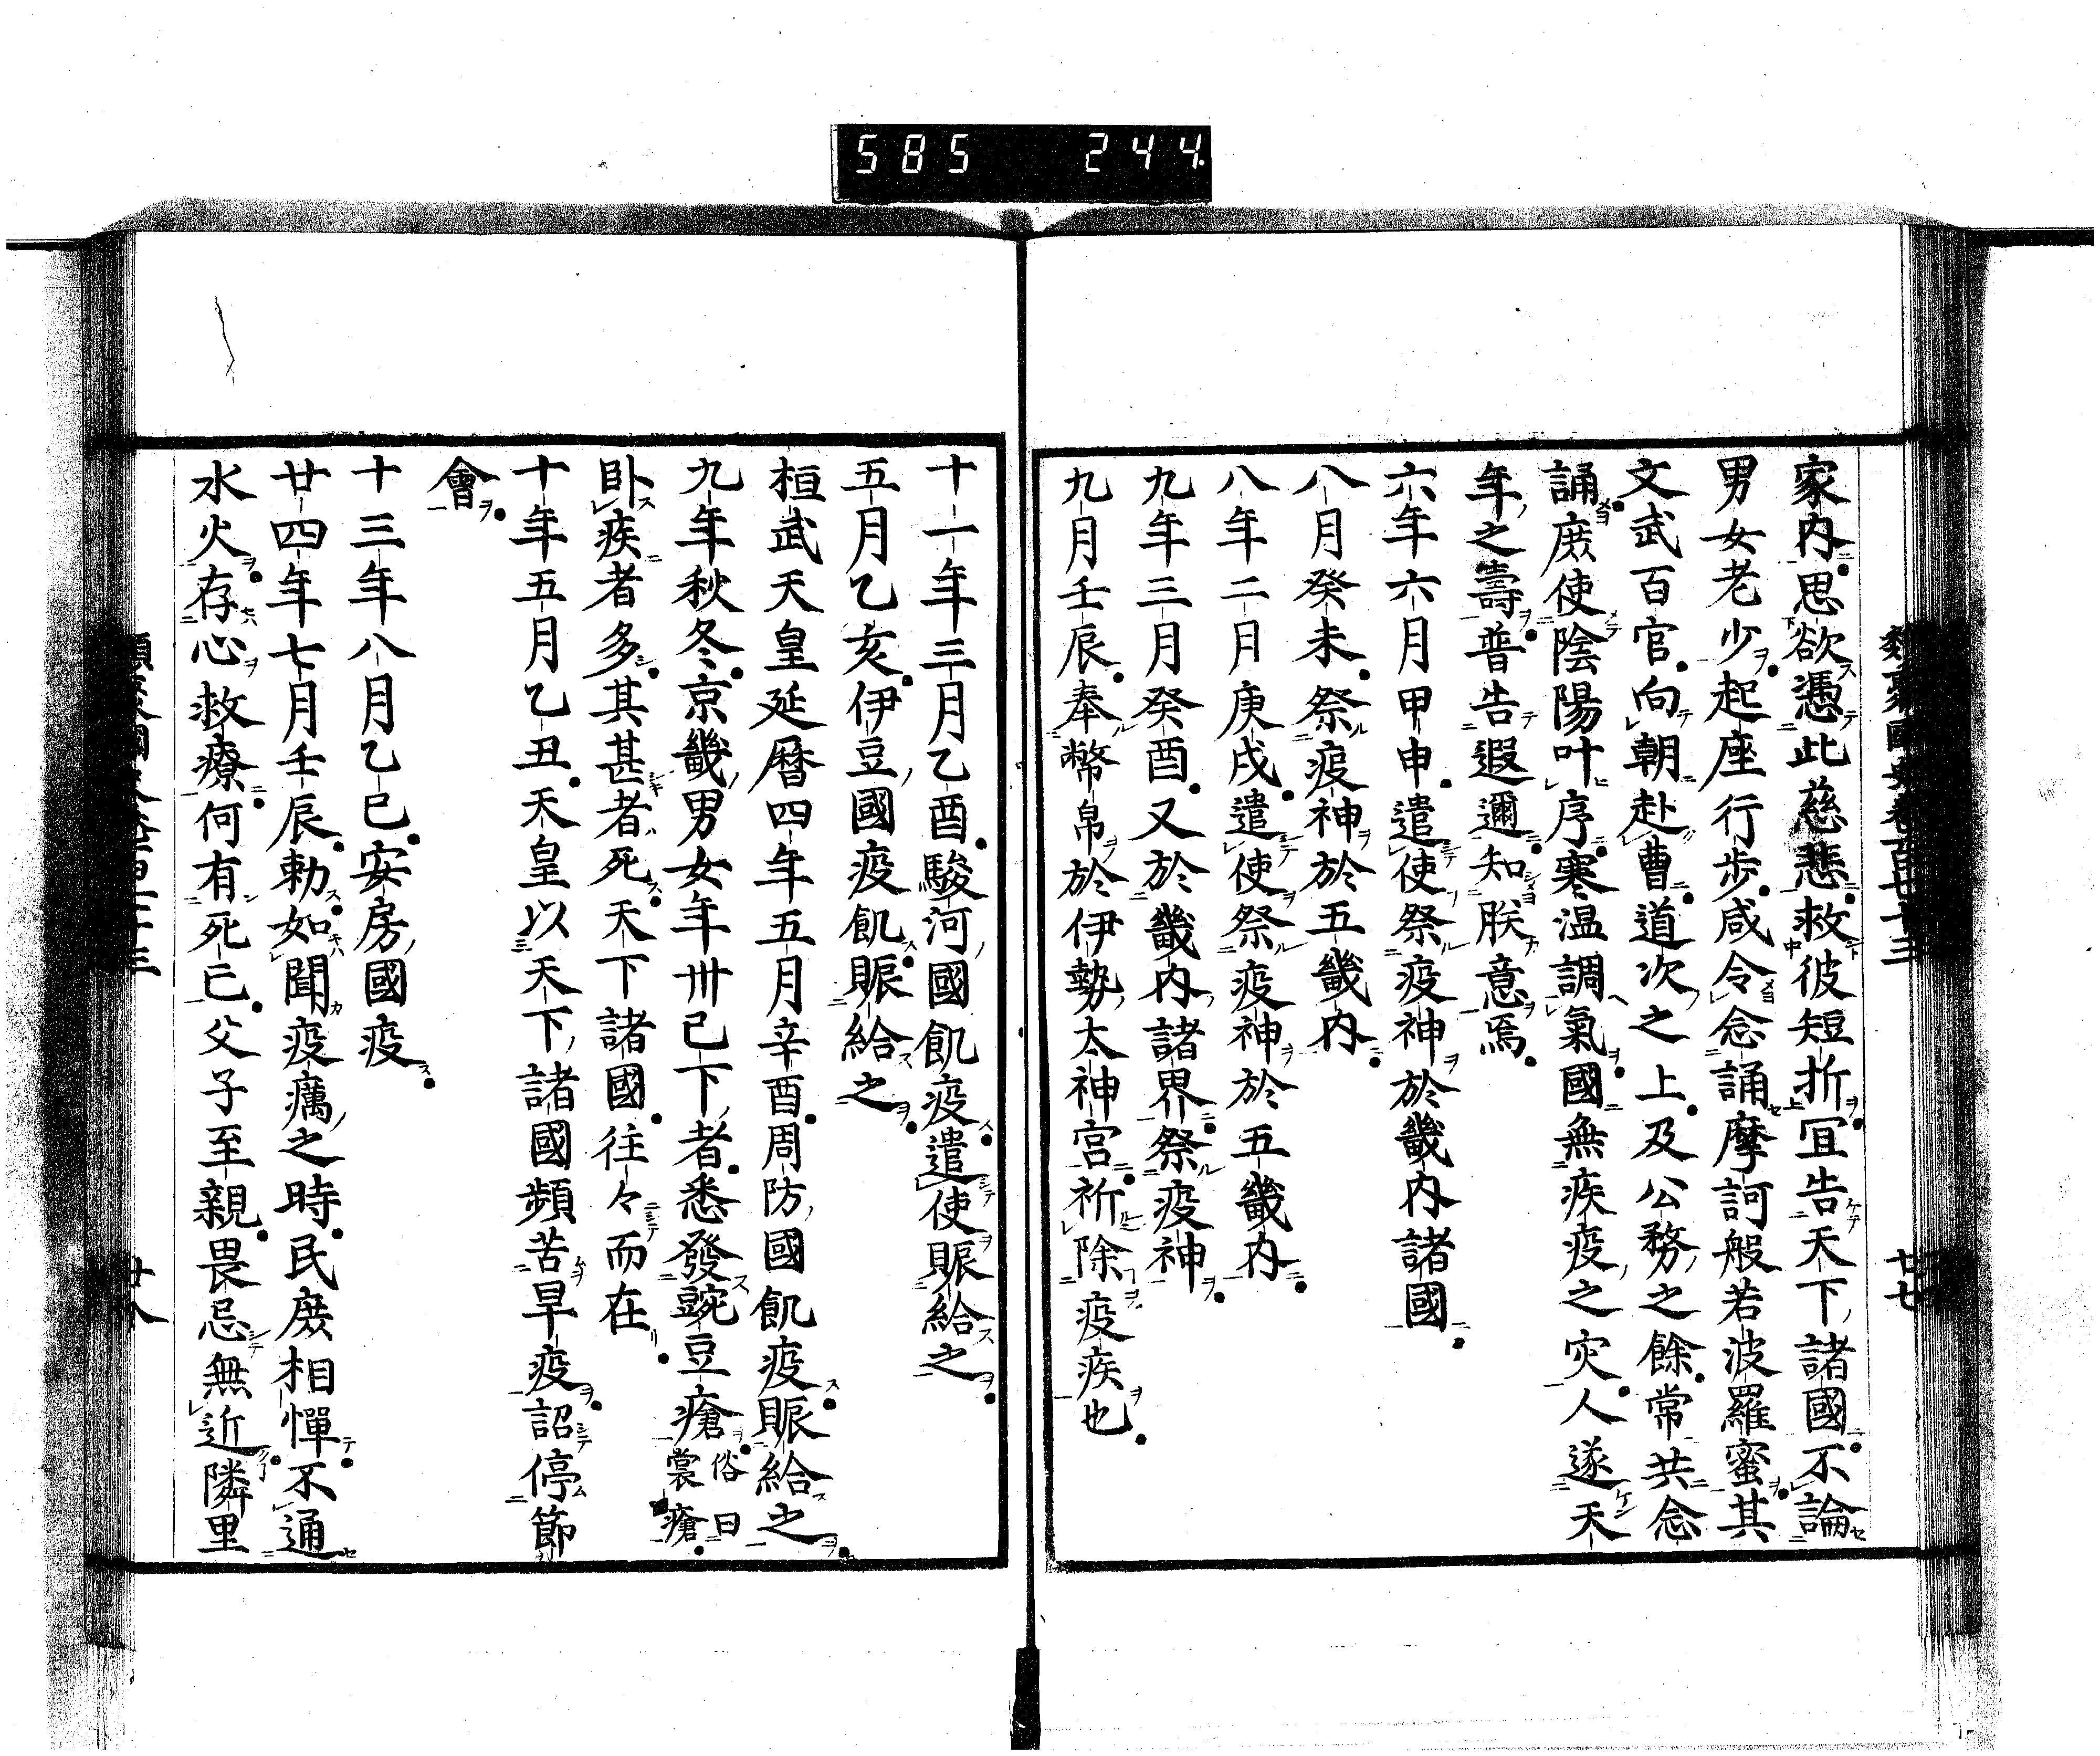 585 244
家内思欲憑此慈悲救彼短折冝告天下諸國不論
男女老少起座行歩咸令念誦摩訶般若波羅蜜其
文武百官向朝赴曹道次之上及公務之餘常共念
誦庶使陰陽叶序寒温調氣國無疾疫之灾人遂天
年之壽普告遐邇知朕意焉
六年六月甲申遣使祭疫神於畿内諸國
八月癸未祭疫神於五畿内
八年二月庚戌遣使祭疫神於五畿内
九年三月癸酉又於畿内諸界祭疫神
九月壬辰奉幣帛於伊勢太神宮祈除疫疾也
十一年三月乙酉駿河國飢疫遣使賑給之
五月乙亥伊豆國疫飢賑給之
桓武天皇延暦四年五月辛酉周防國飢疫賑給之
九年秋冬京畿男女年卅已下者悉發豌豆瘡俗曰裳瘡
臥疾者多其甚者死天下諸國往々而在
十年五月乙丑天皇以天下諸國頻苦旱疫詔停節
會
十三年八月乙巳安房國疫
廿四年七月壬辰勅如聞疫癘之時民庶相憚不通
水火存心救療何有死已父子至親畏忌無近隣里